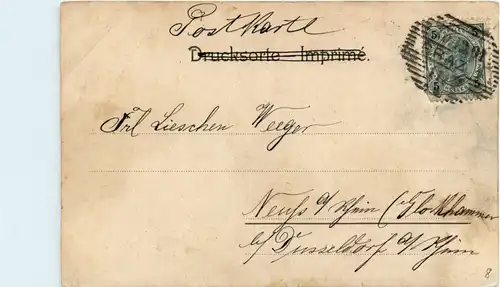 Postkarte
Drucksorte - Imprimé.
Frl Lieschen Weeger
Neuss a/Rhein (Glockhammer
b/ Dusseldorf a/Rhein
8